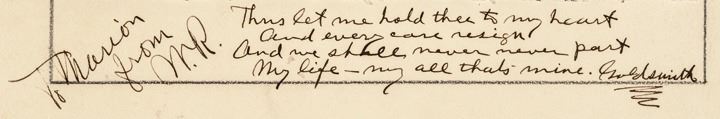 To Marion
from
M.R.
Thus let me hold thee to my heart
And every care resign
And we shall never never part
My life - my all thats mine. Goldsmith